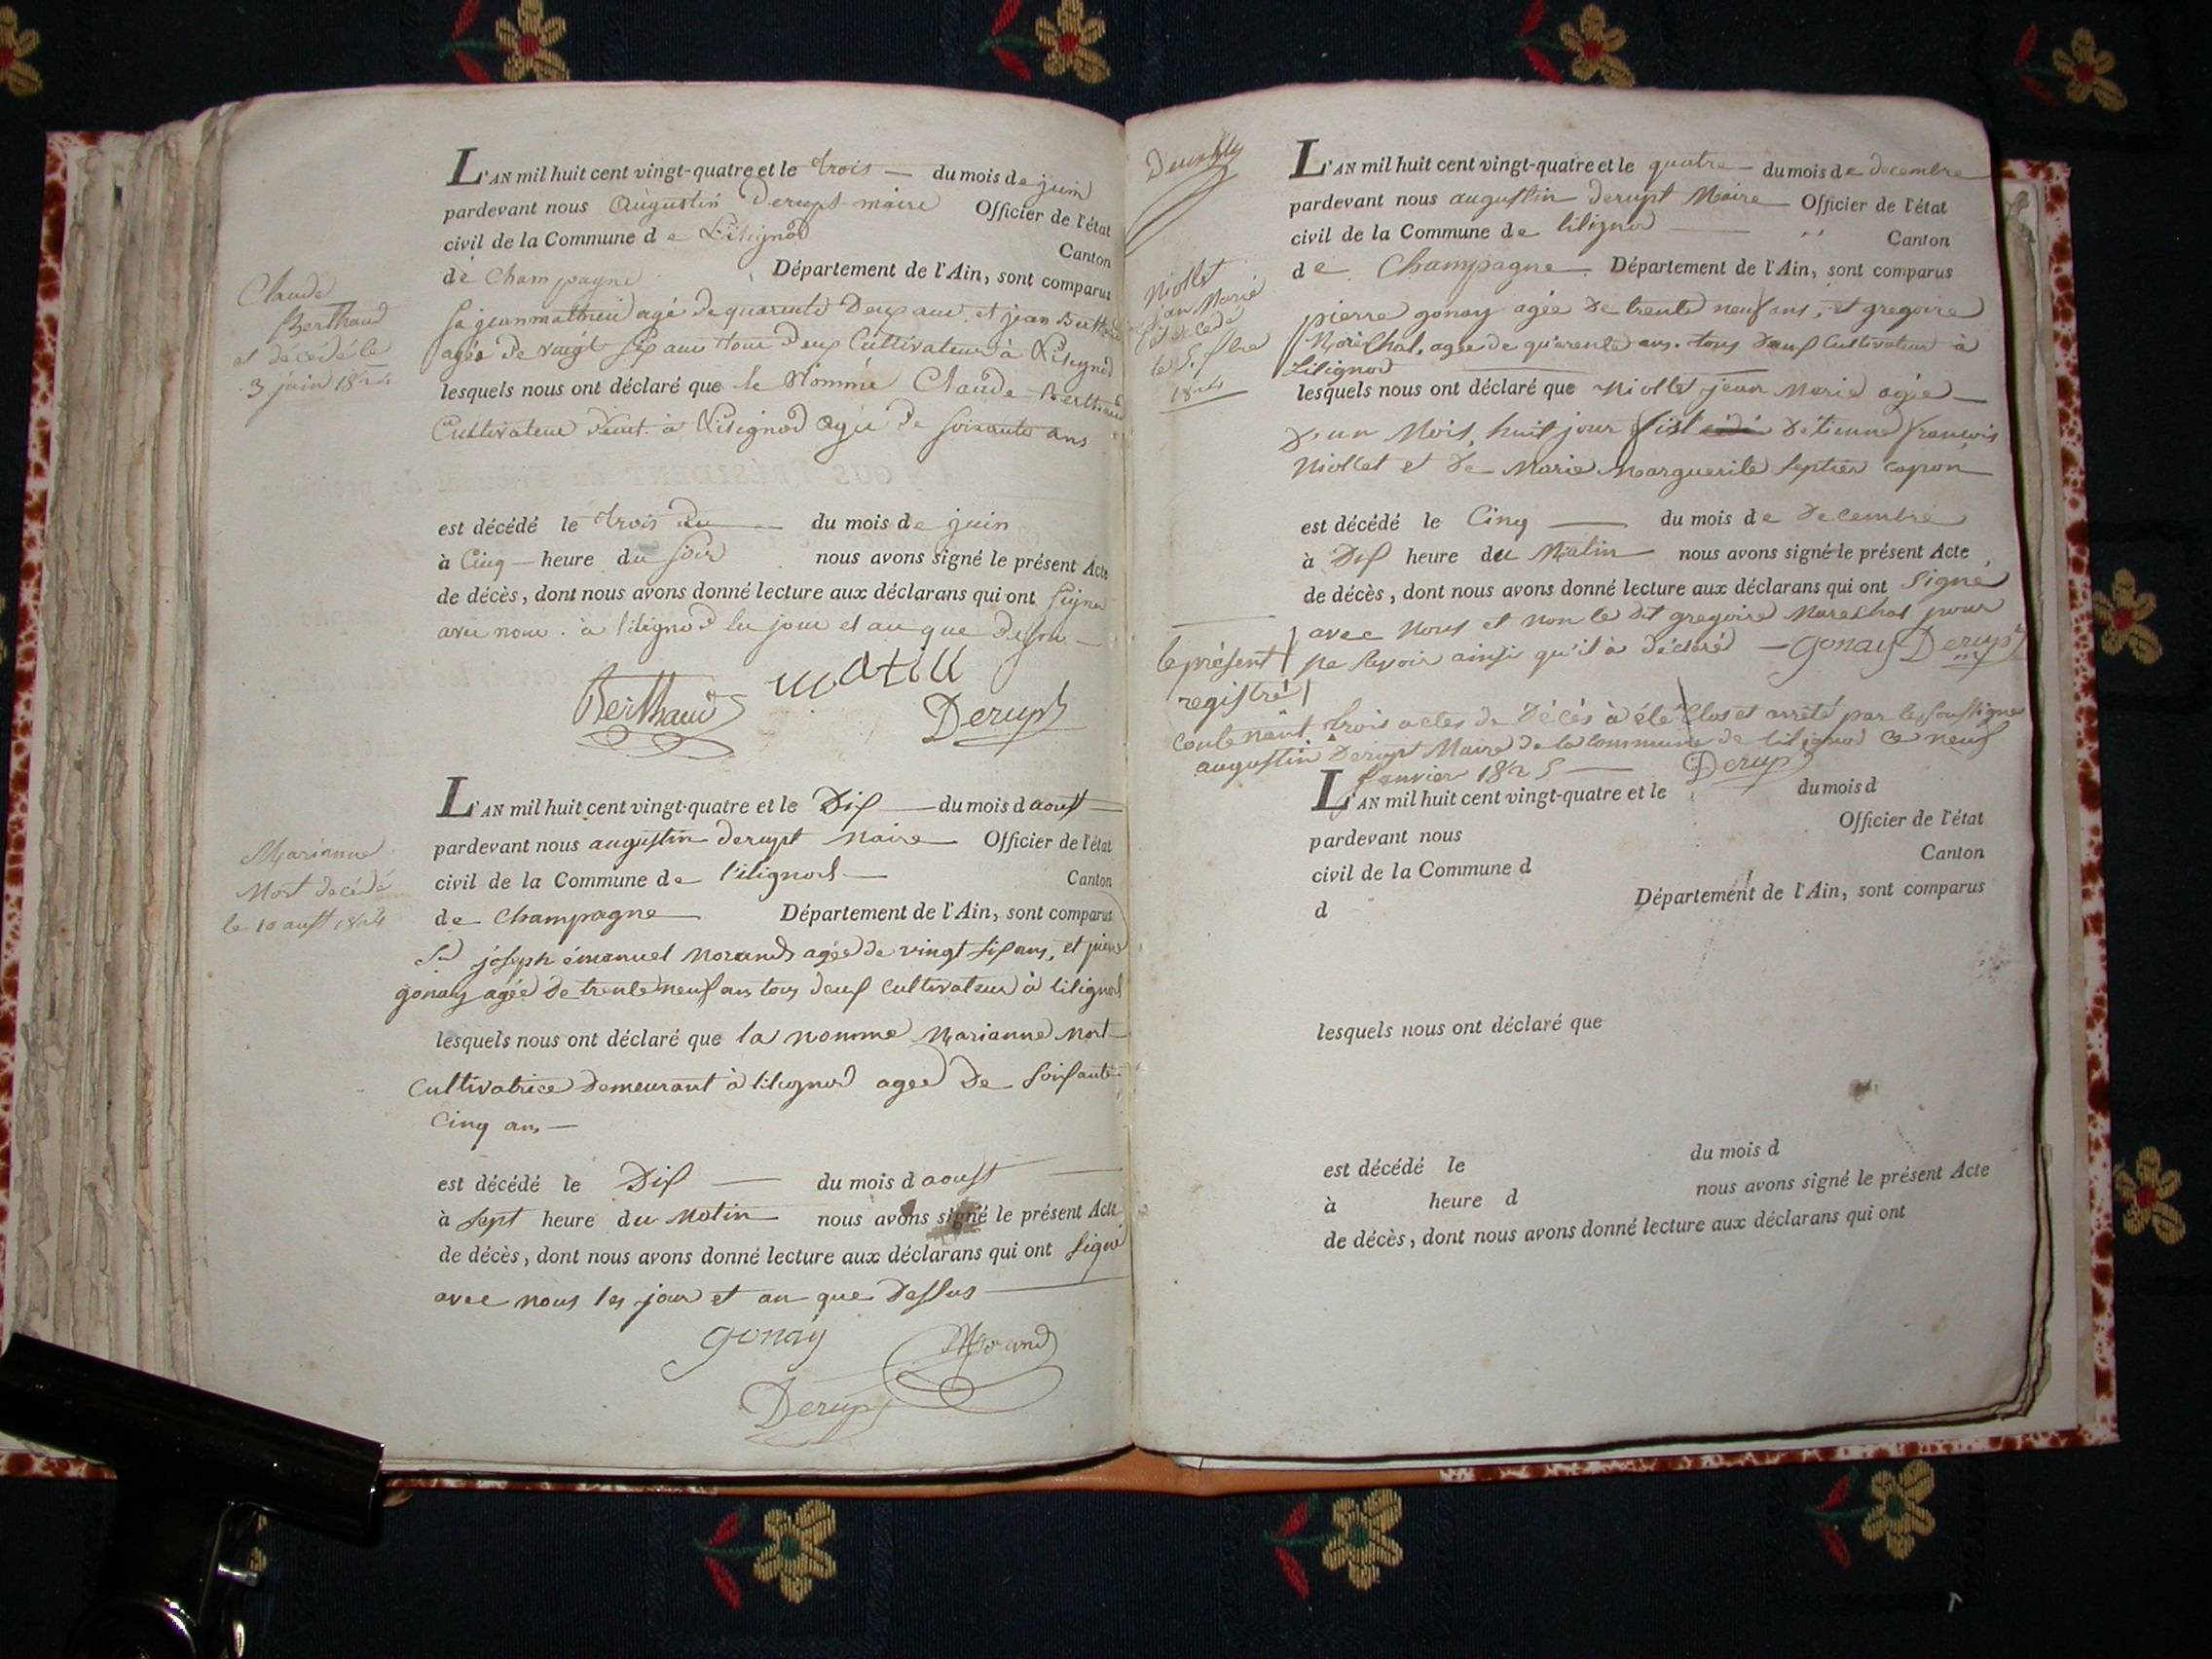 L'AN mil huit cent vingt-quatre et le trois du mois de juin
pardevant nous Augustin Derupt maire Officier de l'état
civil de la Commune de Lilignod
Canton
de Champagne Département de l'Ain, sont comparus
jeanmathieu agé de quarente Deux ans et jean Berthaud
agée de vaigt six ans tous Deux Cultivateur à Lilignod
lesquels nous ont déclaré que le Nommé Claude Berthaud
Cultivateur à Lilignod agée De soixante ans
est décédé le trois du mois de juin
à Cinq heure du soir nous avons signé le présent Acte
de décès, dont nous avons donné lecture aux déclarans qui ont signe
avec nous à lilignod les jour et an que Dessu
Berthaud matieu
Derupt
Claude
Berthaud
est décédé le
3 juin 1824
L'AN mil huit cent vingt-quatre et le Dix du mois d aoust
pardevant nous augustin derupt Maire Officier de l'état
civil de la Commune de lilignod
Canton
de Champagne Département de l'Ain, sont comparus
joseph émanuel Morand agée de vingt six ans, et pierre
gonay agée De trente neuf ans tous deux Cultivateur à lilignod
lesquels nous ont déclaré que la nommé Marianne Mort
Cultivatrice Demeurant à lilignod agee De soixante
Cinq ans
est décédé le Dix du mois d aoust
à sept heure du Matin nous avons signé le présent Acte
de décès, dont nous avons donné lecture aux déclarans qui ont signé
avec nous les jour et an que Dessus
gonay Morand
Derupt
Marianne
Mort decédé
le 10 aust 1824
L'AN mil huit cent vingt-quatre et le quatre du mois de decembre
pardevant nous augustin derupt Maire Officier de l'état
civil de la Commune de lilignod Canton
de Champagne Département de l'Ain, sont comparus
pierre gonay agée De trente neuf ans, et gregoire
Maréchal, agée de quarente ans. tous deux Cultivateur à
Lilignod
lesquels nous ont déclaré que Niollet jean Marie agée
D'un Mois, huit jour fist Détienne françois
Niollet et De Marie Marguerite Septier capon
est décédé le Cinq du mois de Decembre
à Dix heure du Matin nous avons signé le présent Acte
de décès, dont nous avons donné lecture aux déclarans qui ont signe
avec Nous et non le dit gregoire Mareshal pour
ne savoir ainsi qu'il à déclaré gonay Derupt
Niollet
jean Marie
le 5
1824
le présent
registré
contenant trois actes de Décés à été Clos et arrêté par le soussigne
augustin Derupt Maire de la commune de lilignod ce neuf
janvier 1825 Derupt
L'AN mil huit cent vingt-quatre et le du mois d
pardevant nous Officier de l'état
civil de la Commune d Canton
d Département de l'Ain, sont comparus
lesquels nous ont déclaré que
est décédé le du mois d
à heure d nous avons signé le présent Acte
de décès, dont nous avons donné lecture aux déclarans qui ont